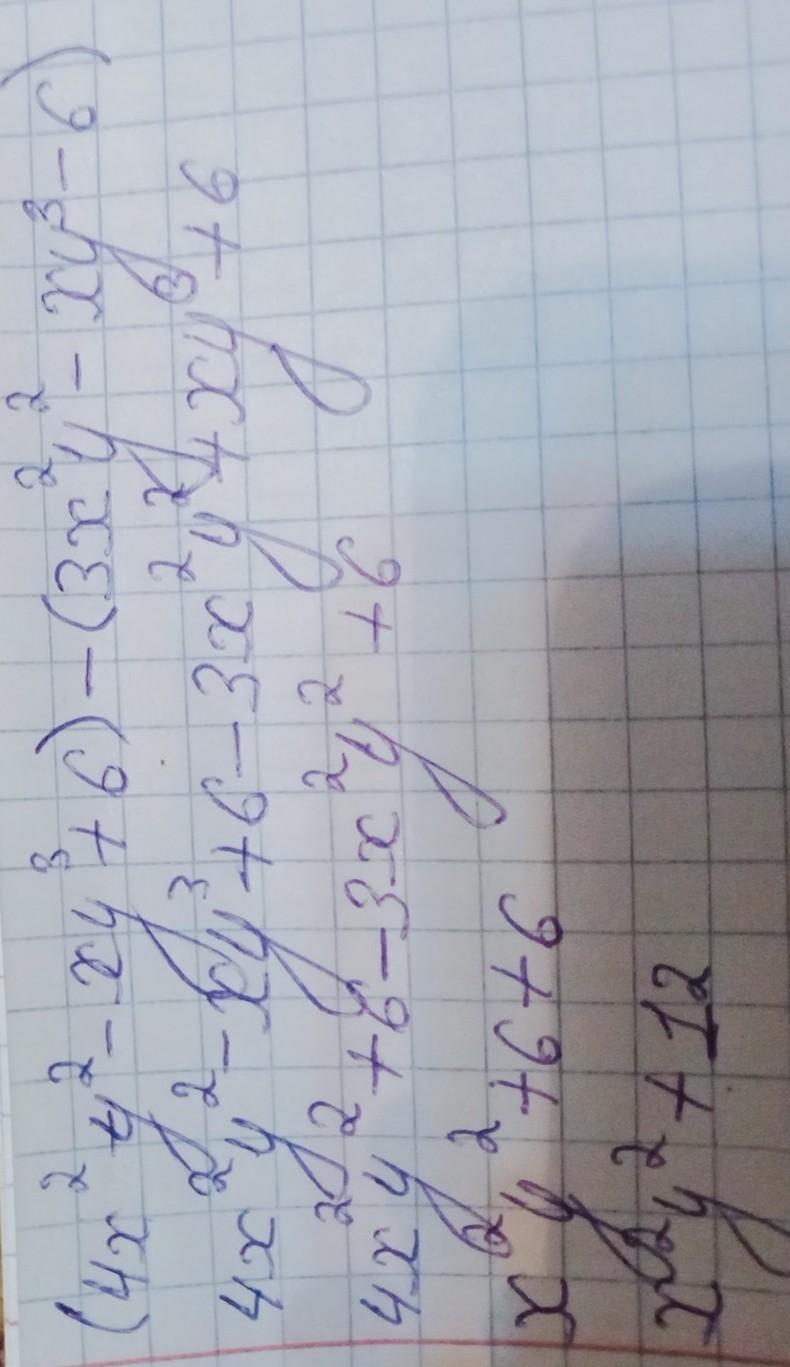 (4x²y²-xy³+6)-(3x²y²-xy³-6)
4x²y²-xy³+6-3x²y²+xy³+6
4x²y²+6-3x²y²+6
x²y²+6+6
x²y²+12